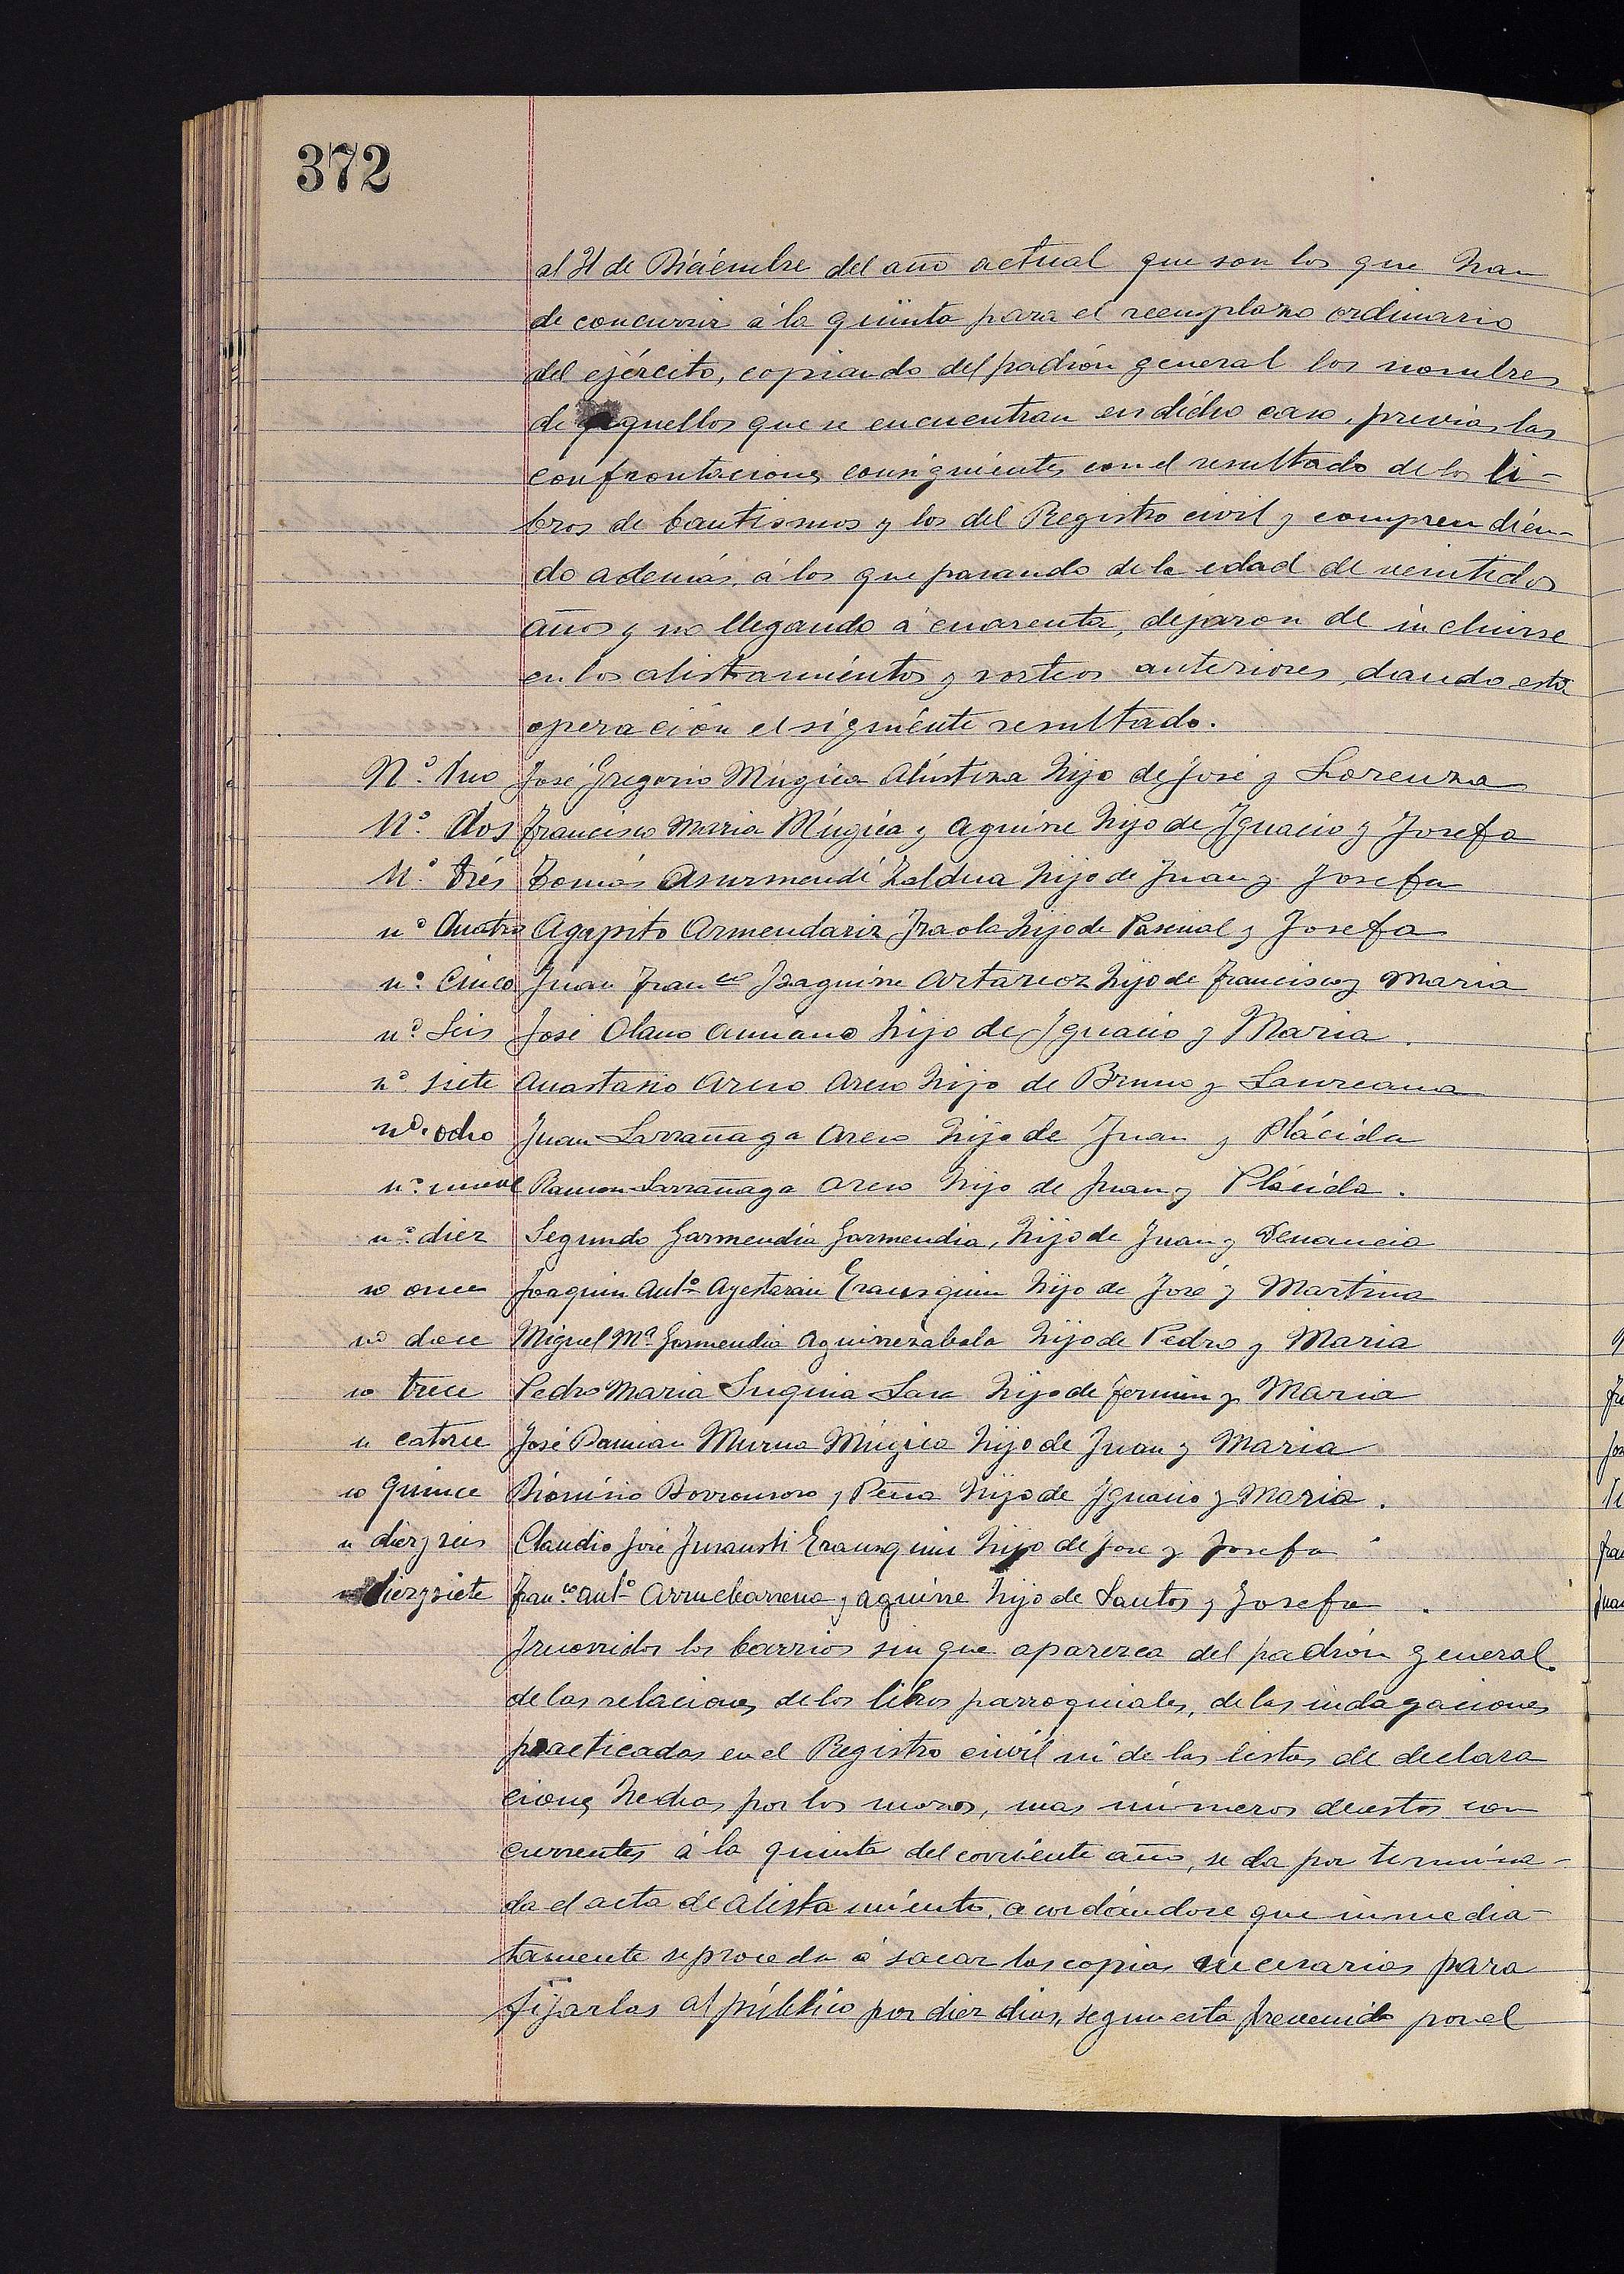 372
al 31 de Diciembre del año actual que son los que han
de concurrir á la quinta para el reemplazo ordinario
del ejército, copiando del padrón general los nombres
de aquellos que se encuentran en dicho caso, previas las
confrontaciones consiguientes con el resultado de los li-
bros de bautismos y los del Registro civil y comprendien-
do además, á los que pasando de la edad de veintidos
años y no llegando á cuarenta, dejaron de incluirse
en los alistamientos y sorteos anteriores, dando esta
operación el siguiente resultado.
Nº. Uno José Gregorio Múgica Alustiza hijo de José y Lorenza
Nº. dos Francisco Maria Múgica y Aguirre hijo de Ygnacio y Josefa
Nº. trés Tomás Asurmendi Zaldua hijo de Juan y Josefa
nº Cuatro Agapito Armendariz Iraola hijo de Pascual y Josefa
nº. Cinco Juan Franco Isaguirre Artarcoz hijo de Francisco y Maria
nº. Seis José Olano Auniano hijo de Ygnacio y Maria.
nº. siete Anastasio Areso Areso hijo de Bruno y Laureana
nº. ocho Juan Larrañaga Areso hijo de Juan y Plácida
nº. nueve Ramon Larrañaga Areso hijo de Juan y Plácida.
nº. diez Segundo Garmendia Garmendia, hijo de Juan y Venancia
nº once Joaquin Antº Ayestarán Erausquin hijo de José y Martina
nº doce Miguel Mª. Garmendia Aguirrezabala hijo de Pedro y Maria
nº trece Pedro Maria Suquia Lasa hijo de Fermin y Maria
n catorce José Damian Murua Múgica hijo de Juan y Maria
nº quince Dionisio Borronsoro y Peña hijo de Ygnacio y Maria.
n diez y seis Claudio José Insausti Erausquin hijo de Jose y Josefa
n diez y siete Franco. Antº Arruebarrena y Aguirre hijo de Santos y Josefa.
y recorridos los barrios sin que aparezca del padrón general
de las relaciones de los libros parroquiales, de las indagaciones
practicadas en el Registro civil ni de las listas de declara
ciones hechas por los mozos, mas números de estos con
currentes á la quinta del corriente año, se da por termina-
da el acta de alistamiento, acordándose que inmedia-
tamente se proceda á sacar las copias necesarias para
fijarlas al público por diez dias, segun esta prevenido por el